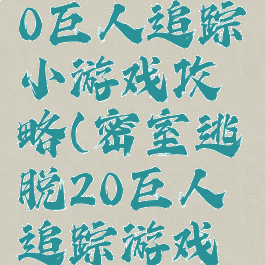 0巨人追踪
小游戏攻
略(密室逃
脱20巨人
追踪游戏